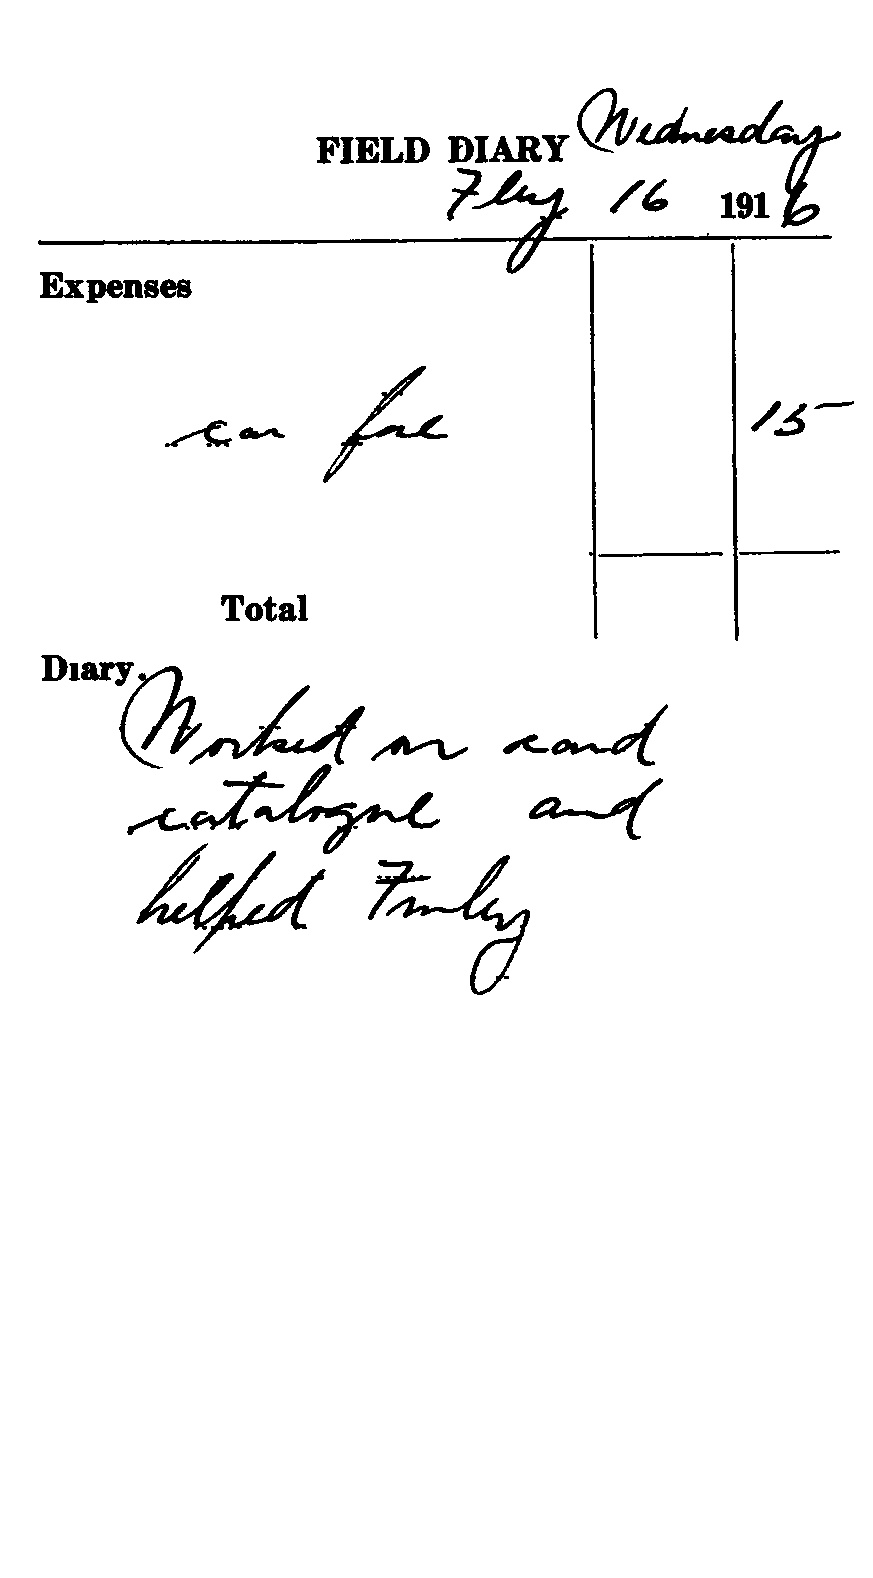 FIELD DIARY Wednesday
Feby 16 1916
Expenses
car fare 15
Total
Diary.
Worked on card
catalogue and
helped Finley